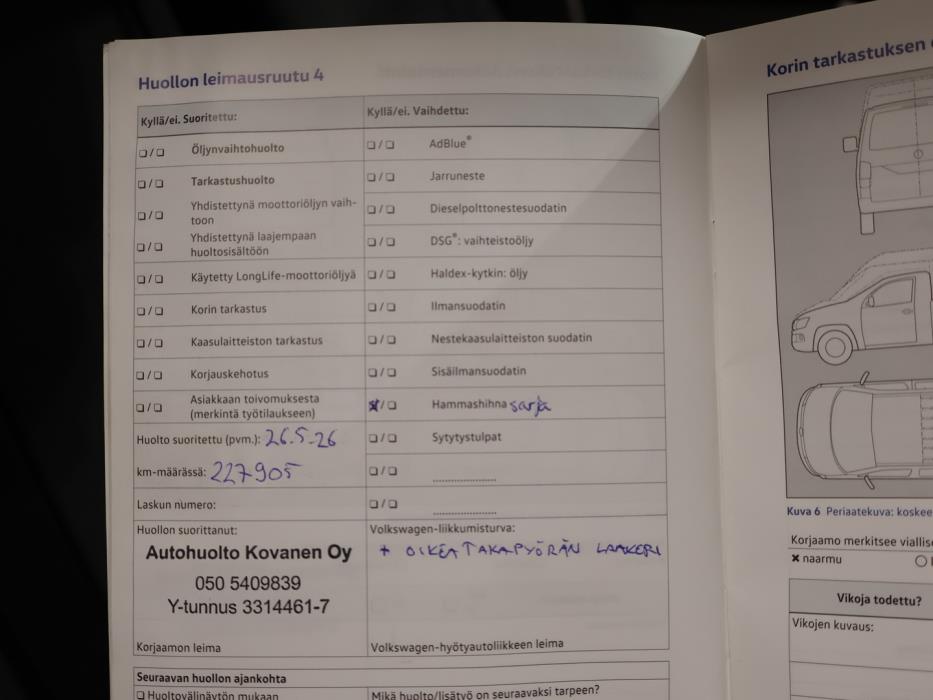 Huollon leimausruutu 4
Kyllä/ei. Suoritettu:
Kyllä/ei. Vaihdettu:
❏ / ❏ Öljynvaihtohuolto
❏ / ❏ AdBlue®
❏ / ❏ Tarkastushuolto
❏ / ❏ Jarruneste
❏ / ❏ Yhdistettynä moottoriöljyn vaih-
toon
❏ / ❏ Dieselpolttonestesuodatin
❏ / ❏ Yhdistettynä laajempaan
huoltosisältöön
❏ / ❏ DSG®: vaihteistoöljy
❏ / ❏ Käytetty LongLife-moottoriöljyä
❏ / ❏ Haldex-kytkin: öljy
❏ / ❏ Korin tarkastus
❏ / ❏ Ilmansuodatin
❏ / ❏ Kaasulaitteiston tarkastus
❏ / ❏ Nestekaasulaitteiston suodatin
❏ / ❏ Korjauskehotus
❏ / ❏ Sisäilmansuodatin
❏ / ❏ Asiakkaan toivomuksesta
(merkintä työtilaukseen)
x / ❏ Hammashihna sarja
Huolto suoritettu (pvm.): 26.5-26
❏ / ❏ Sytytystulpat
km-määrässä: 227905
❏ / ❏ ....................
Laskun numero:
❏ / ❏ ....................
Huollon suorittanut:
Autohuolto Kovanen Oy
050 5409839
Y-tunnus 3314461-7
Korjaamon leima
Volkswagen-liikkumisturva:
+ OIKEA TAKAPYÖRÄN LAAKERI
Volkswagen-hyötyautoliikkeen leima
Seuraavan huollon ajankohta
❏ Huoltovälinäytön mukaan
Mikä huolto/lisätyö on seuraavaksi tarpeen?
Korin tarkastuksen
Kuva 6 Periaatekuva: koskee
Korjaamo merkitsee viallise
✖ naarmu
Vikoja todettu?
Vikojen kuvaus: